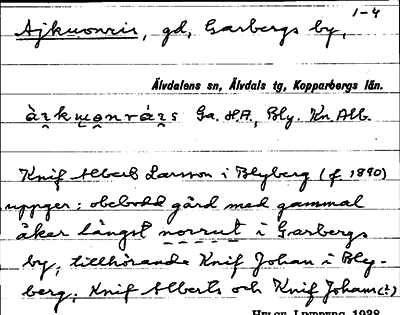 1-4
Ajkuonris, gd, Garbergs by,
Älvdalens sn, Älvdals tg, Kopparbergs län.
Ga. HA., Bly. Kn. Alb.
Knif Albert Larsson i Blyberg (f. 1890)
uppger: obebodd gård med gammal
åker längst norrut i Garbergs
by, tillhörande Knif Johan i Bly-
berg, Knif Alberts och Knif Johans(?)
HELGE LINDBERG 1938